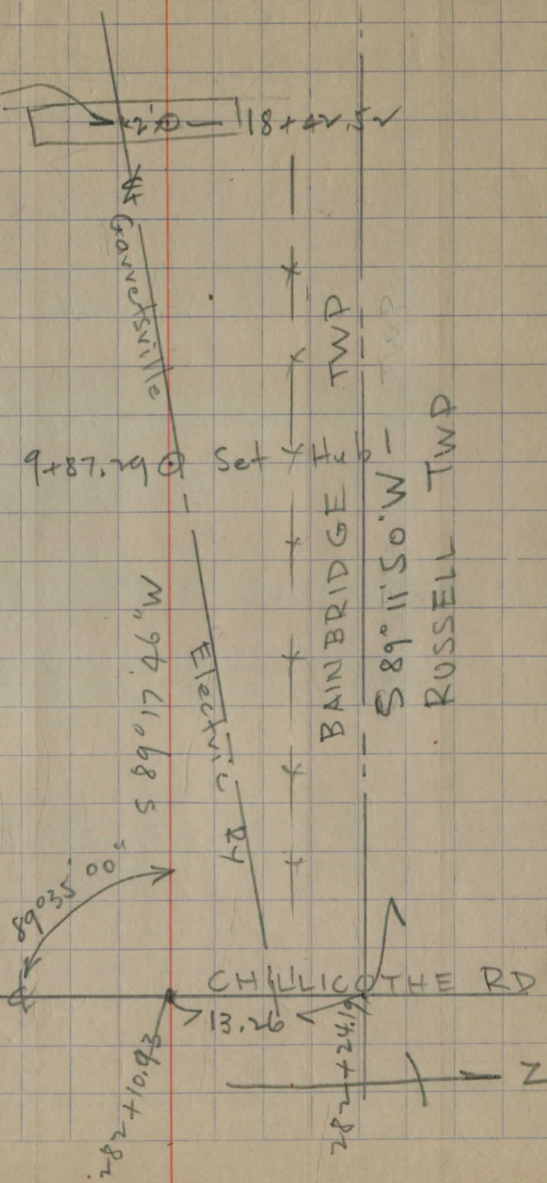 2'
18+42.52
Garretsville
9+87.29
Set Hub
BAINBRIDGE TWP
S 89° 11' 50" W
RUSSELL TWP
S 89° 17' 46" W
Electric
Ry
89° 35' 00"
CHILLICOTHE RD
13.26
282+10.93
282+24.19
N